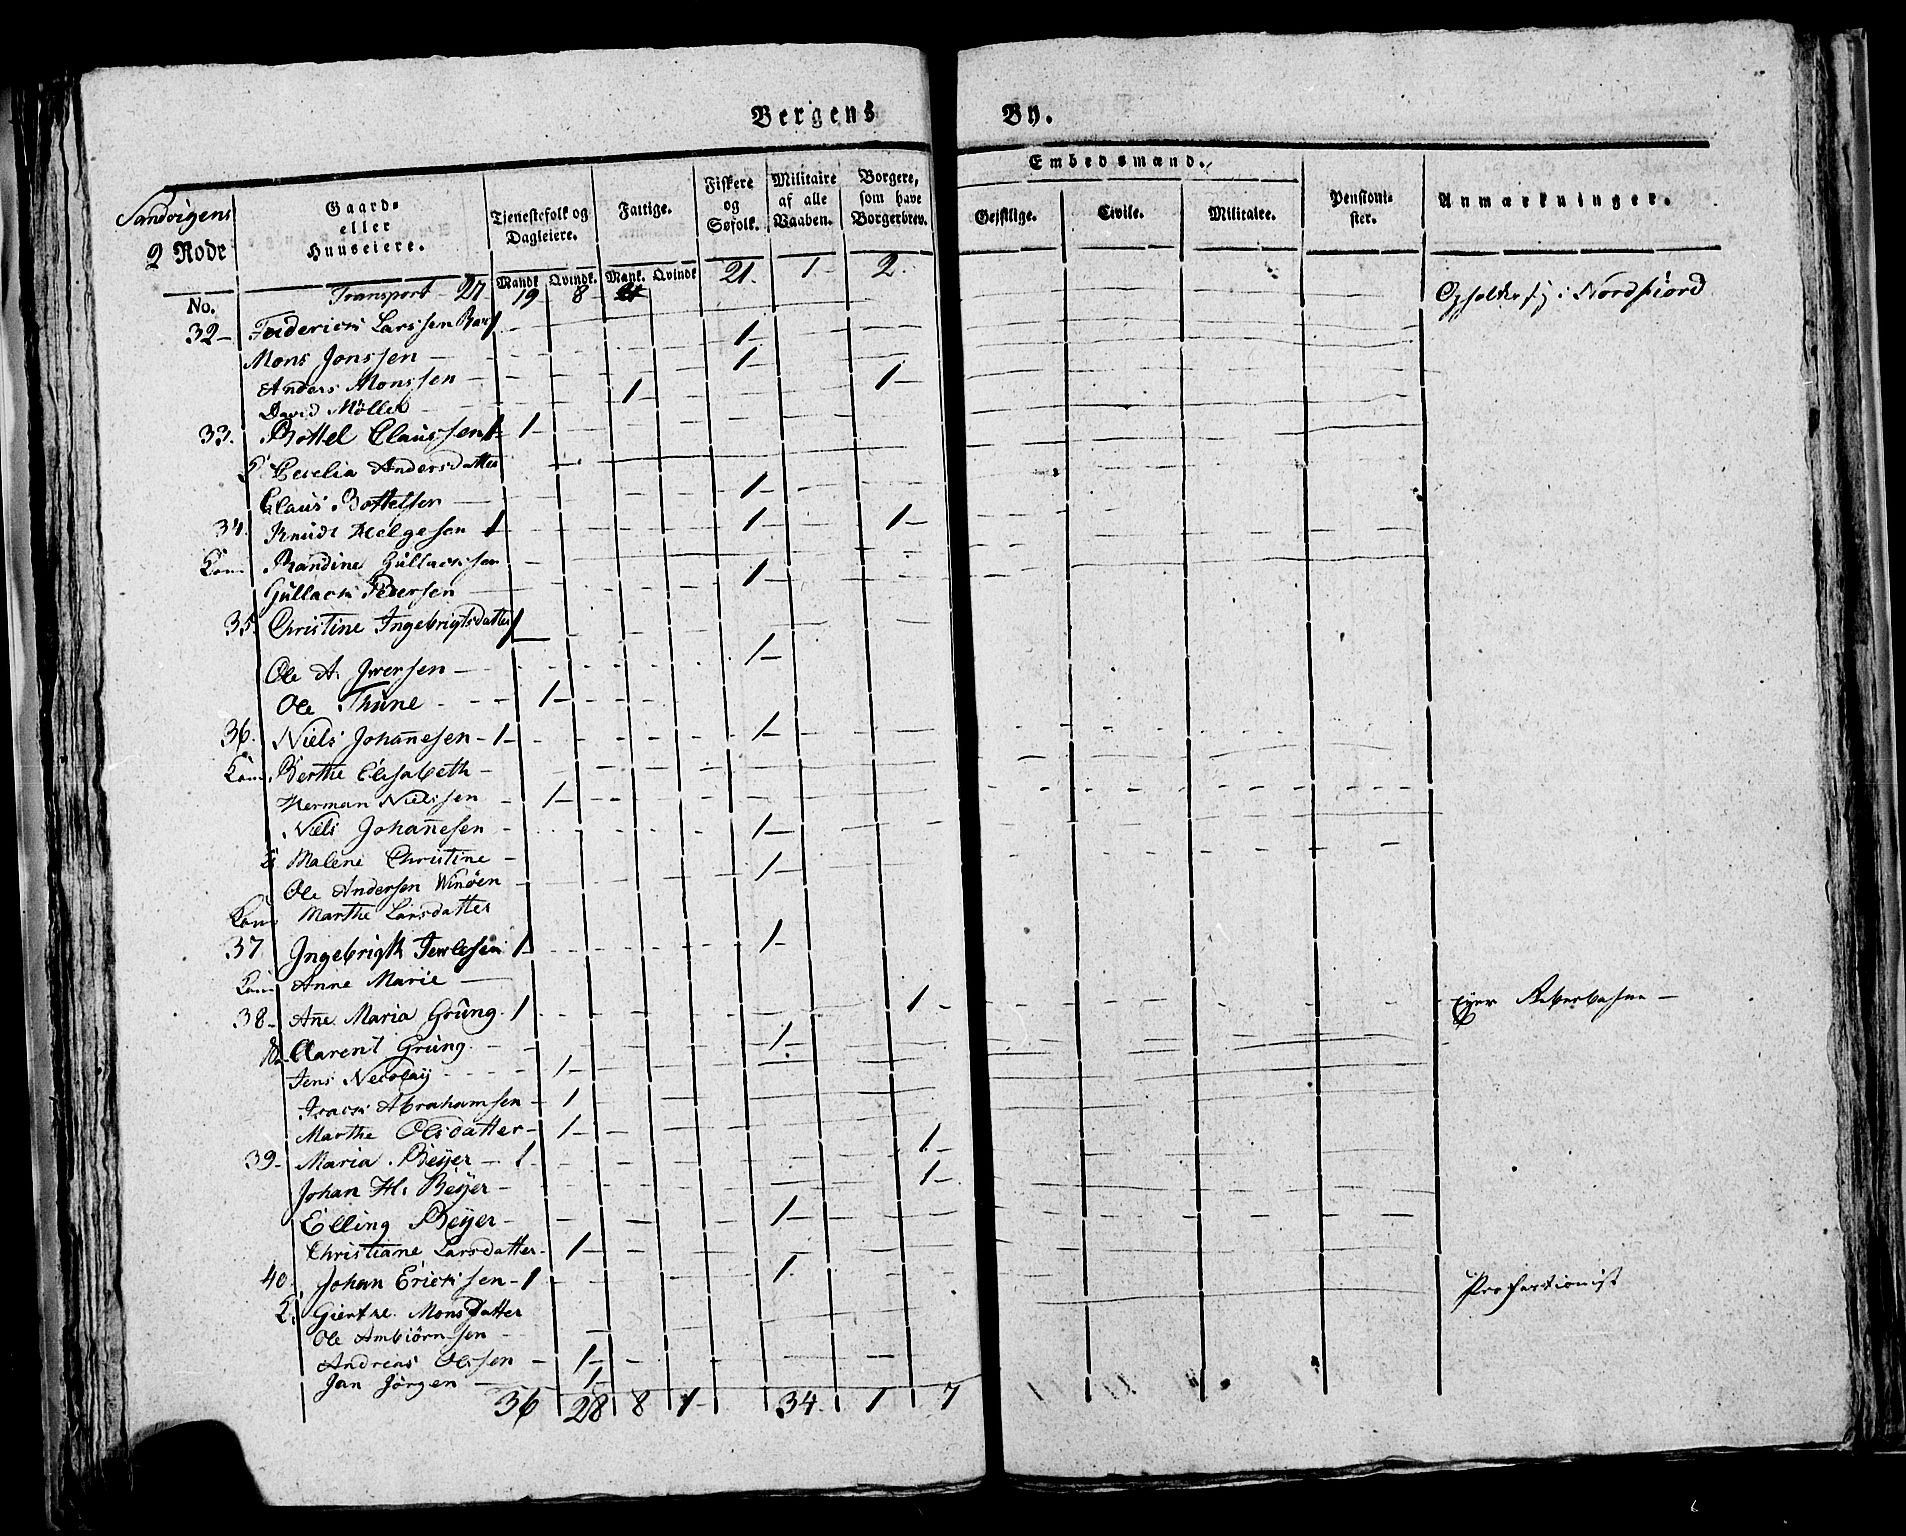 Bergens By.
Sandvigens
2 Rode
No.
Gaard-
eller
Huuseiere.
Tjenestefolk og
Dagleiere.
Mandk. Qvindk.
Fattige.
Mank. Qvindk
Fiskere
og
Søfolk.
Militaire
af alle
Vaaben.
Borgere,
som have
Borgerbrev.
Embedsmænd.
Gejstlige. Civile. Militaire.
Pensioni-
ster.
Anmærkninger.
Transport - 27 19 8 21. 1 - 2.
i Nordfiord
32 - Friderich Larssen 1 - 1 -
Mons Jonssen - 1 -
Anders Monssen - 1 -
David Møller 1
33. Bottel Claussen 1 1 -
Cecelia Andersdatter
Claus Bottelsen 1 -
34. Knudt Helgesen 1 1 - 1 -
Kon. Randine Gullachsen
Gullach Pedersen 1 -
35. Christine Ingebrigtsdatter 1
Ole A. Iversen - 1 -
Ole Thune 1 -
36. Niels Johannesen - 1 - 1 -
Kon. Berthe Elisabeth -
Herman Nielssen 1 -
Niels Johannesen - 1 -
Malene Christine -
Ole Andersen 1 -
Kon Marthe Larsdatter
37 Ingebrigt 1 1 -
Kon Anne Marie
38 - Ane Maria Grung. 1 1 - Eyer Reberbahne -
Clarent Grung. 1 -
Jens Nicolay 1 -
Isach Abrahamsen - 1
Marthe Olsdatter - 1 -
39 - Maria Beyer - 1 - 1 -
Johan H. Beyer - 1 -
Elling Beyer - 1 -
Christiane Larsdatter - 1 -
40. Johan Erichsen - 1 1 - Profestionist
K. Giertre Monsdatter
Ole Ambiørnsen -
Andreas Olssen - 1 -
Jan Jørgen - 1 -
36 28 8 1 - 34. 1 7